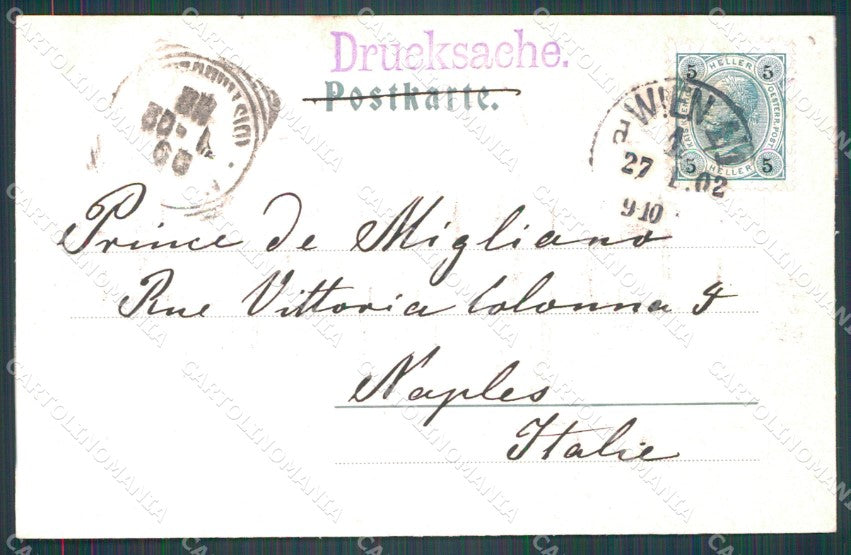 Drucksache.
Postkarte.
5 HELLER 5
5 HELLER 5
WIEN
1
27 . .02
9 10
30 - 1
Prince de Migliano
Rue Vittoria Colonna 4
Naples
Italie
CARTOLINOMANIA